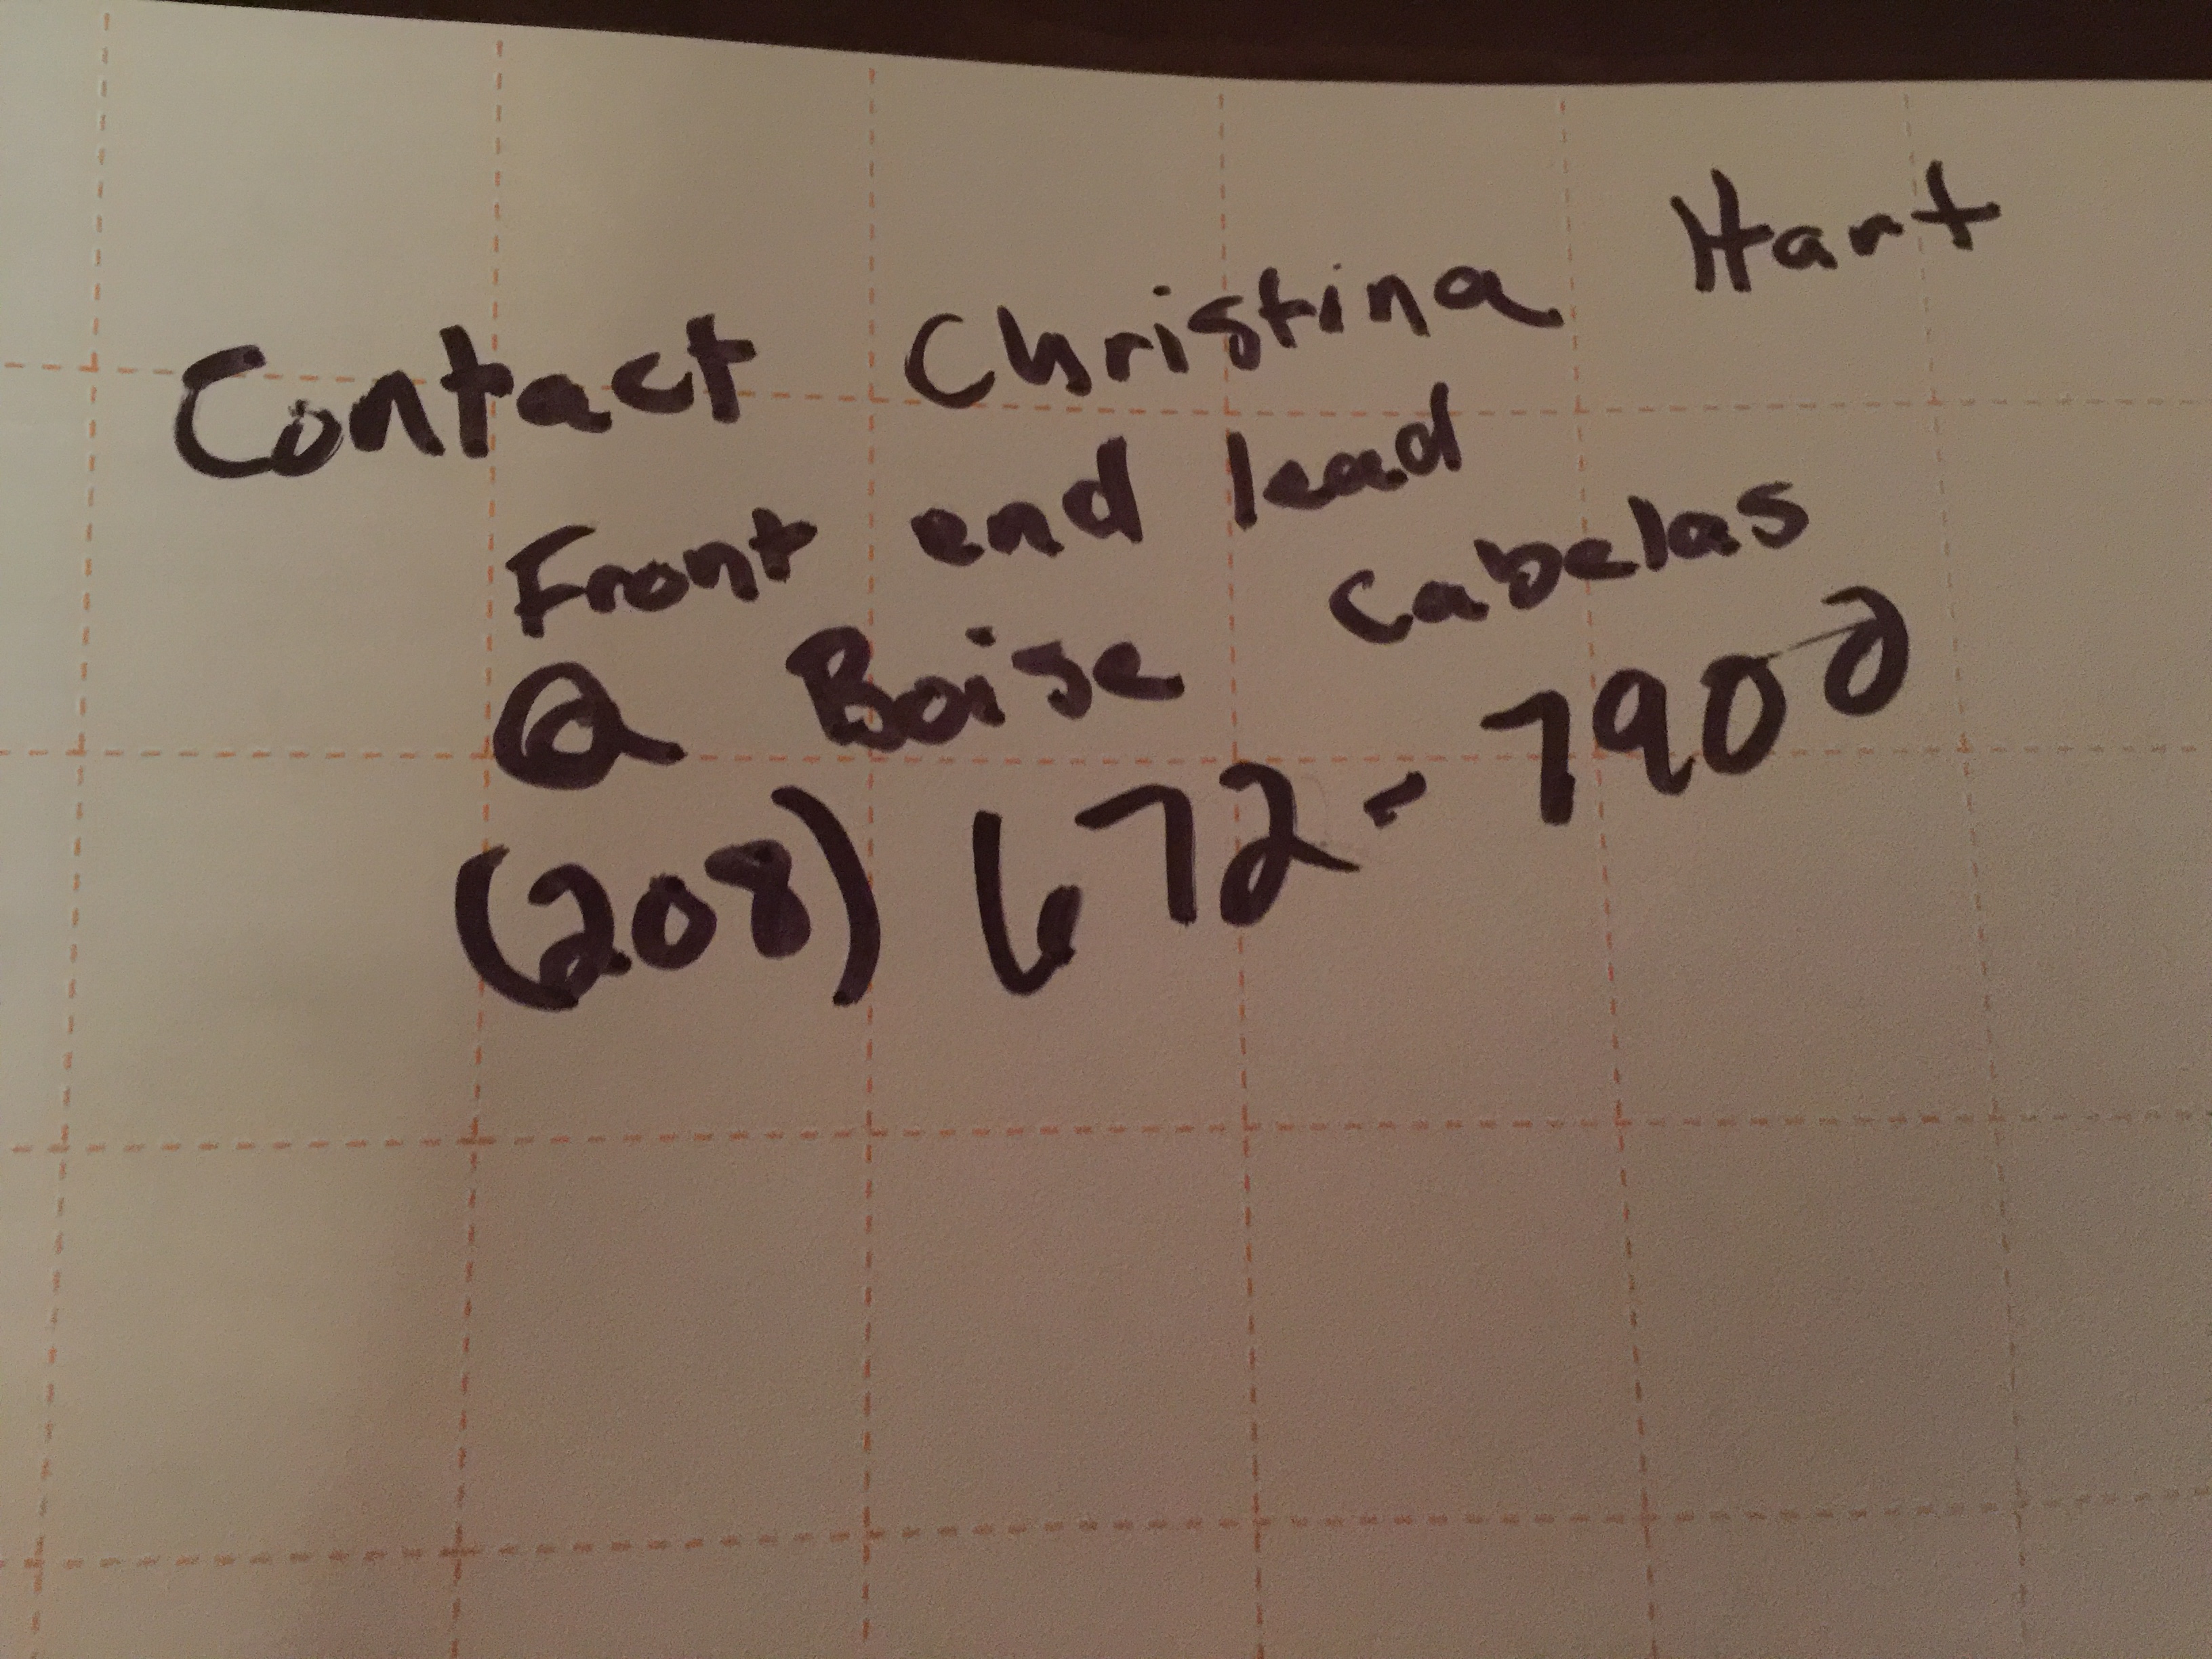 Contact Christina Hart
Front end lead
@ Boise Cabelas
(208) 672-7900